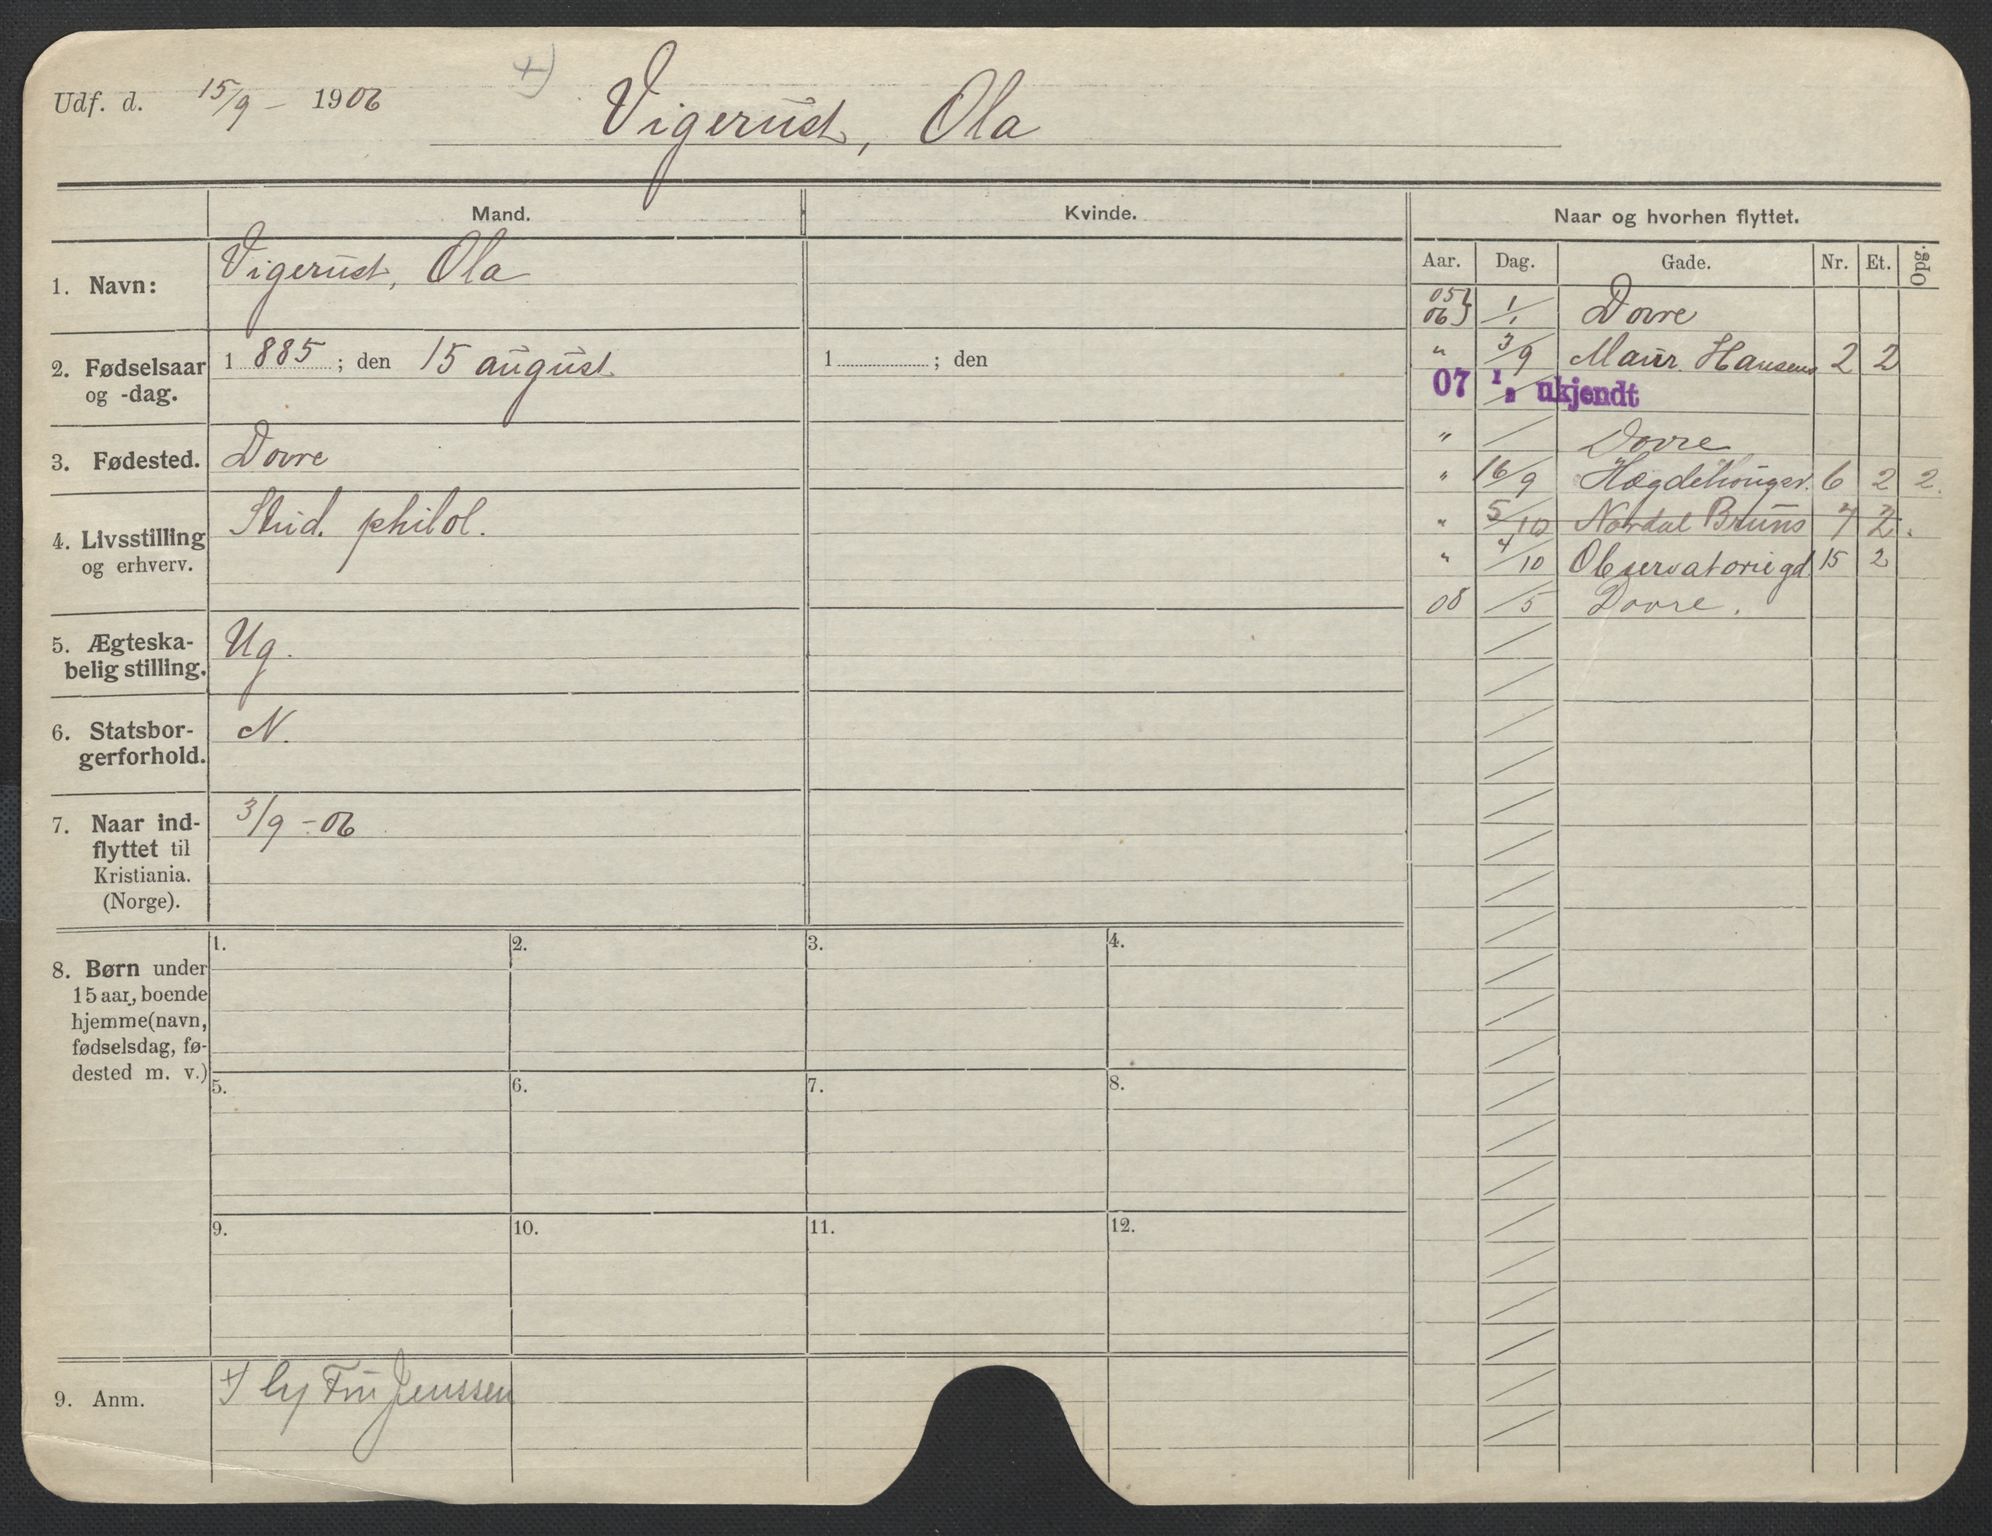 Udf. d. 15/9 - 1906
+)
Vigerust, Ola
Mand.
Kvinde.
Naar og hvorhen flyttet.
Aar. Dag. Gade. Nr. Et. Opg.
1. Navn: Vigerust, Ola
2. Fødselsaar og -dag. 1885; den 15 august
1 ; den
3. Fødested. Dovre
4. Livsstilling og erhverv. Stud. philol.
5. Ægteska-
belig stilling. Ug.
6. Statsbor-
gerforhold. N.
7. Naar ind-
flyttet til
Kristiania.
(Norge). 3/9 - 06
05} 06} 1/1 Dovre
" 3/9 Maur. Hansens 2 2
07 1/2 ukjendt
" / Dovre
" 16/9 Hægdehougsv. 6 2 2.
" 5/10 Nordal Bruns 7 2.
" 4/10 Observatoriegd. 15 2
08 /5 Dovre.
8. Børn under
15 aar, boende
hjemme (navn,
fødselsdag, fø-
dested m. v.)
1. 2. 3. 4.
5. 6. 7. 8.
9. 10. 11. 12.
9. Anm. +) hy Fru Jenssen